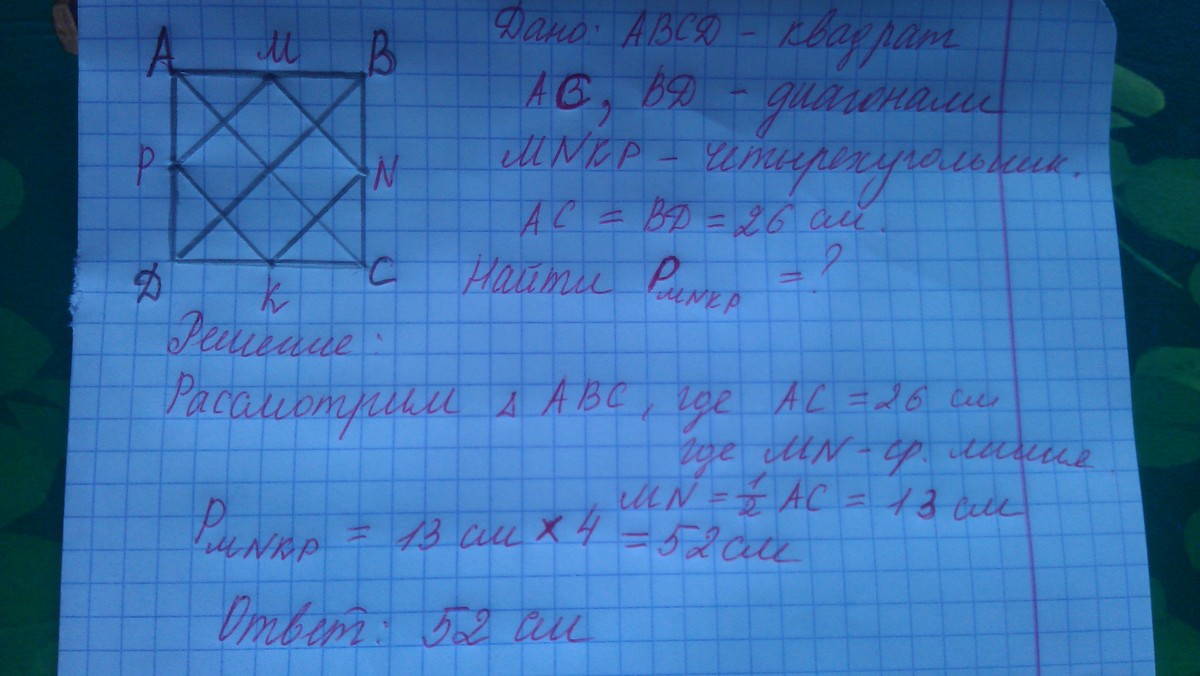 A M B
P N
D K C
Дано: ABCD - квадрат
AC, BD - диагонали
MNKP - четырехугольник.
AC = BD = 26 см.
Найти P MNKP = ?
Решение:
Рассмотрим △ ABC, где AC = 26 см
где MN - ср. линия
MN = 1/2 AC = 13 см
P MNKP = 13 см × 4 = 52 см
Ответ: 52 см